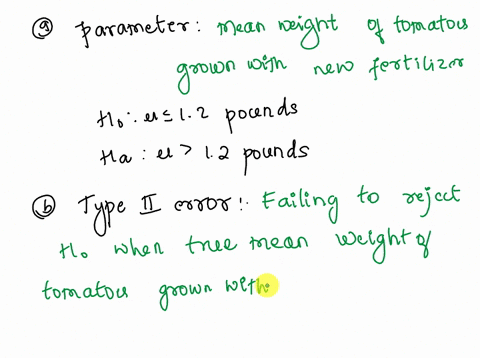 ⓐ parameter: mean weight of tomatous
grown with new fertilizer
H₀: u ≤ 1.2 pounds
Ha: u > 1.2 pounds
ⓑ Type II error:. Failing to reject
H₀ when true mean weight of
tomatous grown with